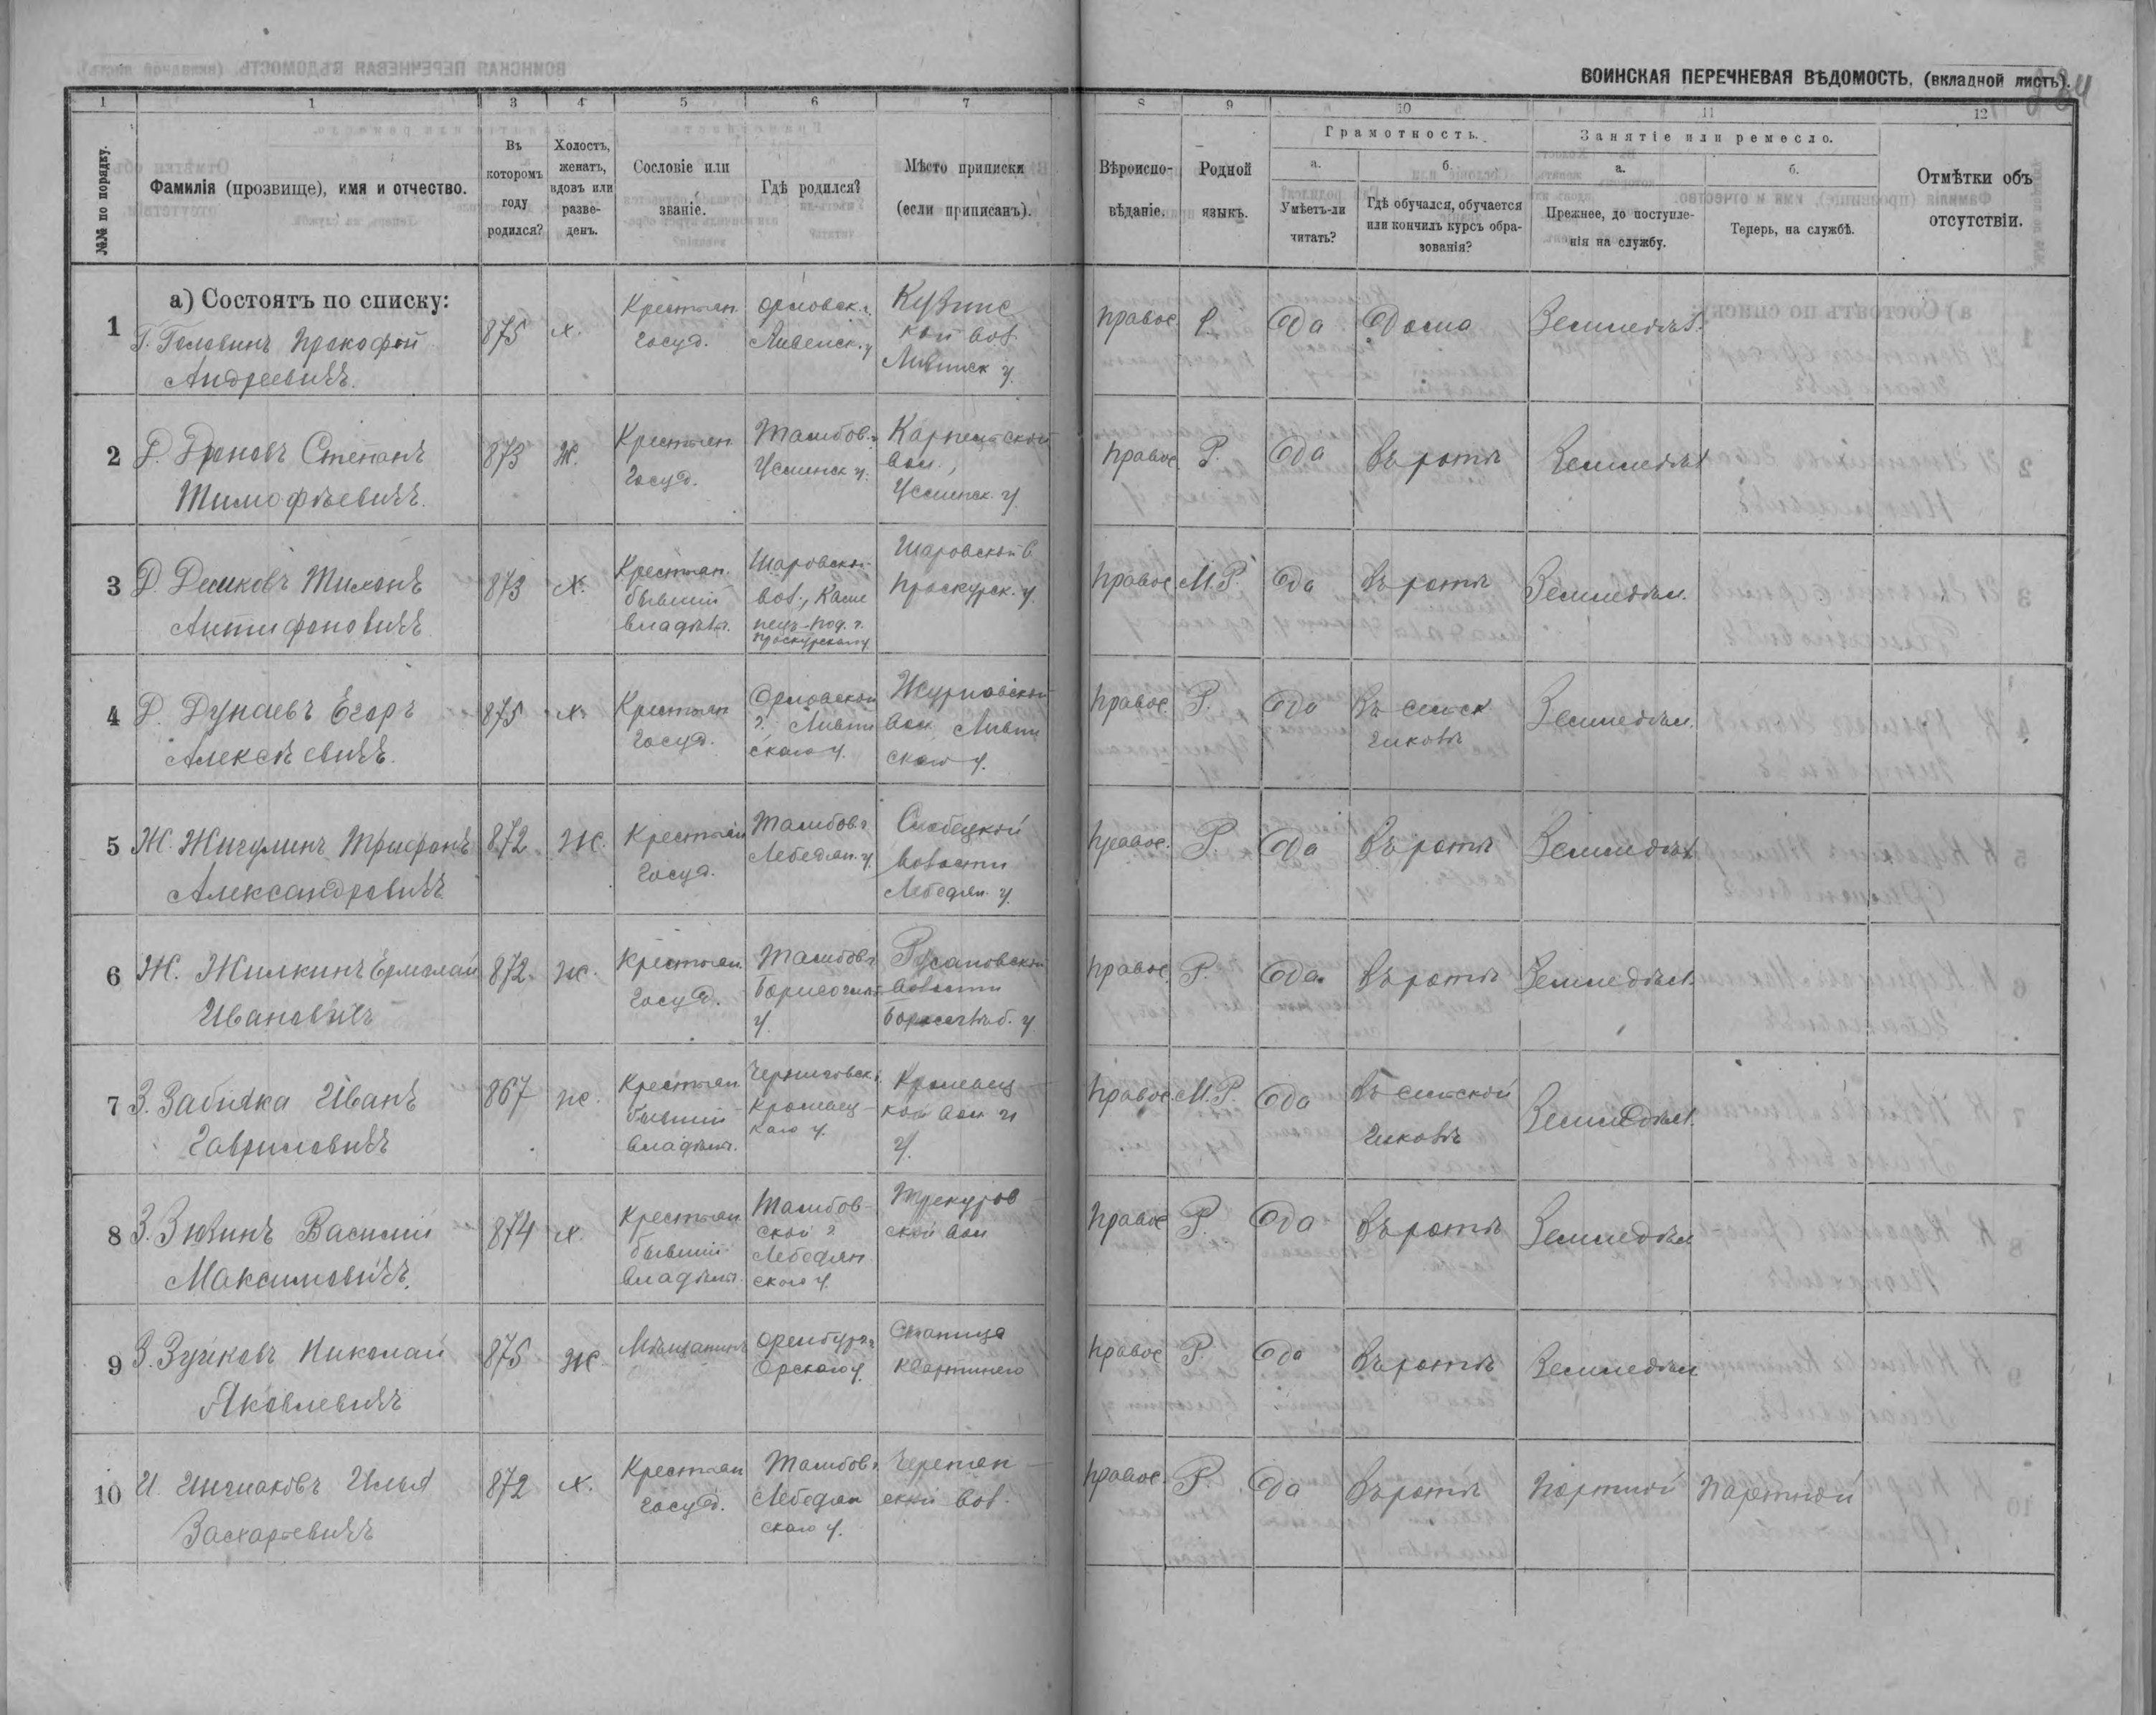 ВОИНСКАЯ ПЕРЕЧНЕВАЯ ВѢДОМОСТЬ. (вкладной листъ).
1 1 3 4 5 6 7 8 9 10 11 12
№№ по порядку.
Фамилія (прозвище), имя и отчество.
Въ которомъ году родился?
Холостъ, женатъ, вдовъ или разве-денъ.
Сословіе или званіе.
Гдѣ родился?
Мѣсто приписки (если приписанъ).
Вѣроиспо-вѣданіе.
Родной языкъ.
Грамотность.
а. Умѣетъ-ли читать?
б. Гдѣ обучался, обучается или кончилъ курсъ обра-зованія?
Занятіе или ремесло.
а. Прежнее, до поступле-нія на службу.
б. Теперь, на службѣ.
Отмѣтки объ отсутствіи.
а) Состоятъ по списку:
1 Г. Головинъ Прокофій Андреевичъ. 875 х. Крестьян. госуд. Орловск. г. Ливенск. у. вол. у. Правос. Р. Да Дома Земледѣл.
2 Д. Дроновъ Степанъ Тимофѣевичъ. 873 Ж. Крестьян. госуд. Тамбов. г. Усманск. у. вол., Усманск. у. Правос. Р. Да Въ ротѣ Земледѣл.
3 Д. Тихонъ 873 х. Крестьян. бывший владѣл. Шаровской вол., Каме нецъ-Под. г. Проскурскаго у. Шаровской в. Проскурск. у. Правос. М.Р. Да Въ ротѣ Земледѣл.
4 Д. Дунаевъ Егоръ Алексѣевичъ. 875 х. Крестьян госуд. Орловской г. Ливен скаго у. вол Ливен скаго у. Правос. Р. Да Въ сельск школѣ Земледѣл.
5 Ж. Жигулинъ Трифонъ Александровичъ 872 Ж. Крестьян госуд. Тамбов. г. Лебедян. у. волости Лебедян. у. Правос. Р. Да Въ ротѣ Земледѣл
6 Ж. Жилкинъ Ермолай Ивановичъ 872. ж. Крестьян. госуд. Тамбов. г. Борисоглѣб у. Русановской волости Борисоглѣб. у. Правос. Р. Да. Въ ротѣ Земледѣл.
7 З. Забияка Иванъ Гавриловичъ 867 ж. Крестьян бывший владѣл. Черниговск. г. Кролевец- каго у. Кролевец кой вол и у. Правос. М.Р. Да Въ сельской школѣ Земледѣл.
8 З. Зюзинъ Василий Максимовичъ. 874 х. Крестьян бывший владѣл. Тамбов- ской г Лебедян скаго у. Трекуров ской вол Правос Р. Да Въ ротѣ Земледѣл
9 З. Зучковъ Николай Яковлевичъ 875 Ж. Мѣщанинъ Оренбург. г. Орскаго у. Станица Правос Р. Да Въ ротѣ Земледѣл
10 И. Илья Захарьевичъ 872 х. Крестьян госуд. Тамбов. г. Лебедян скаго у. вол. Правос. Р. Да Въ ротѣ Портной Портной